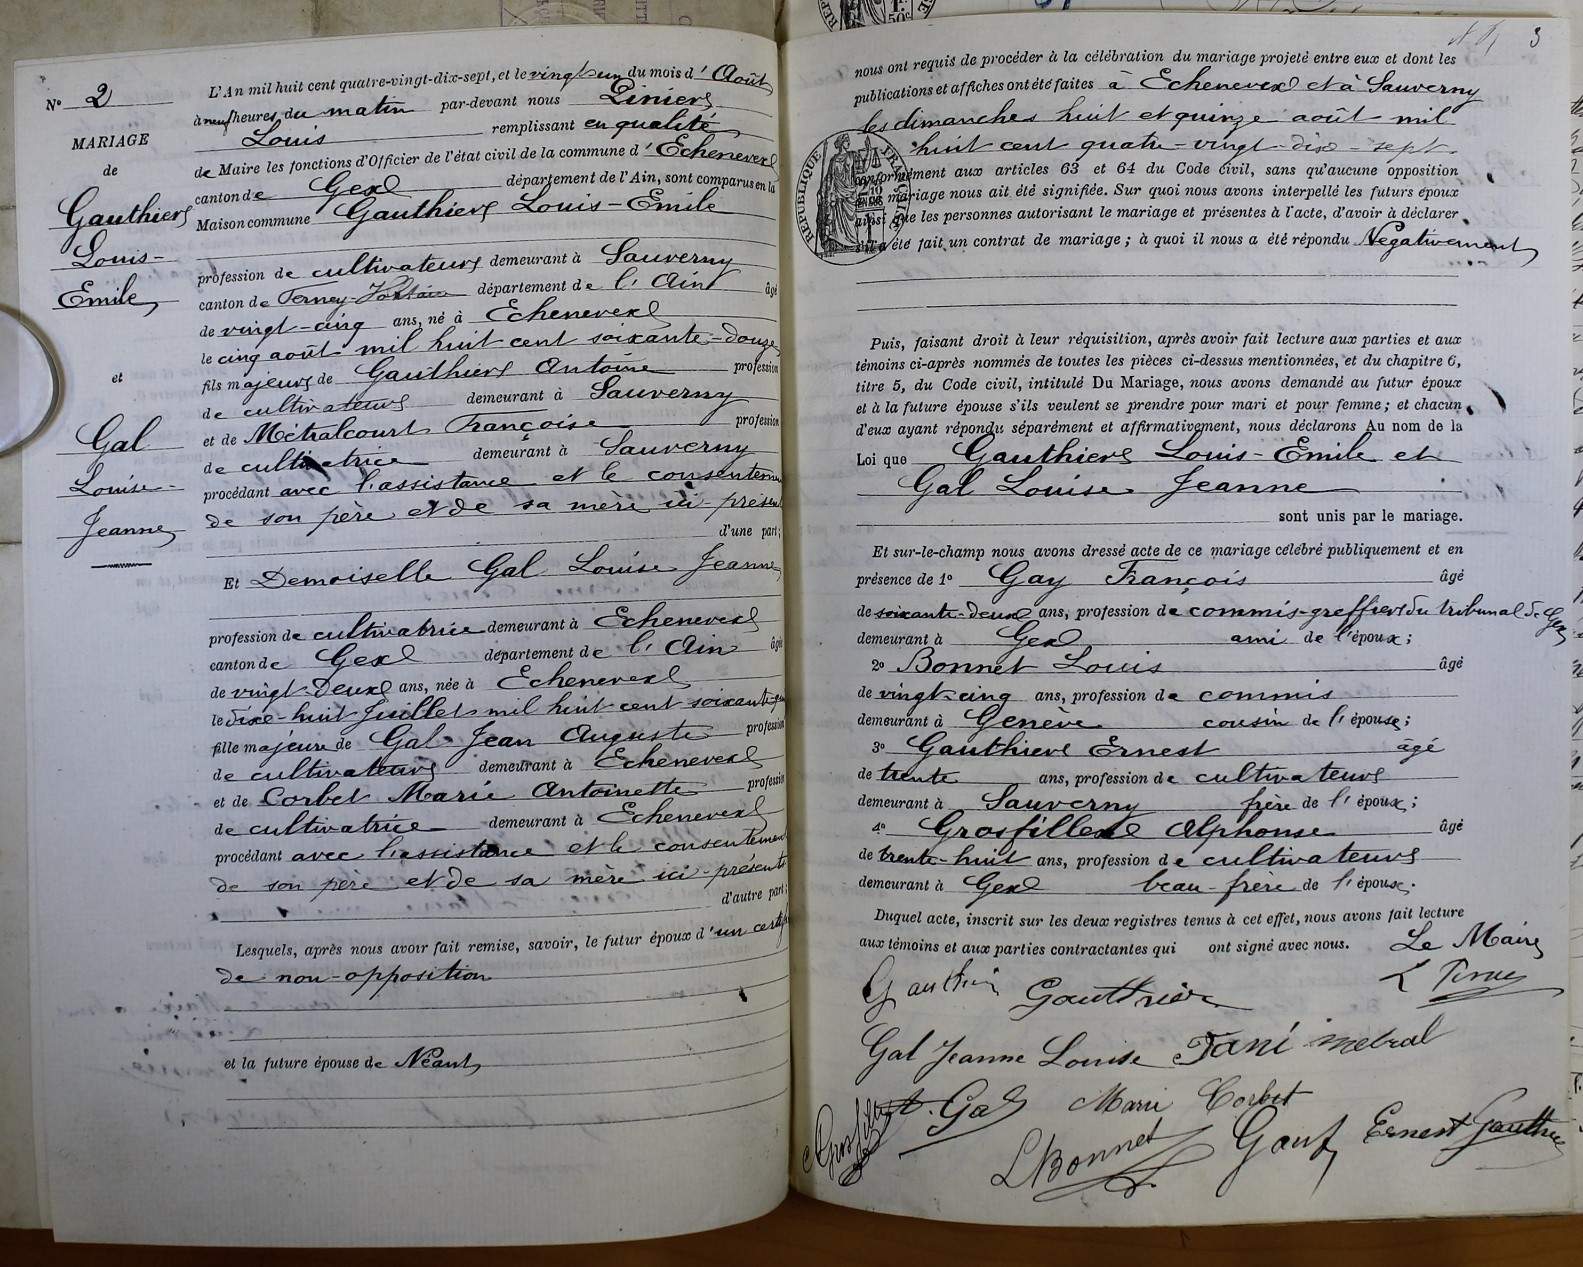 N° 2
MARIAGE
de
Gauthier
Louis-
Emile
et
Gal
Louise-
Jeanne
L'An mil huit cent quatre-vingt-dix-sept, et le vingt-un du mois d'Août
à neuf heures du matin par-devant nous Piniers
Louis remplissant en qualité
de Maire les fonctions d'Officier de l'état civil de la commune d'Echenevex
canton de Gex département de l'Ain, sont comparus en la
Maison commune Gauthier Louis-Emile
profession de cultivateur demeurant à Sauverny
canton de Ferney-Voltaire département de l'Ain âgé
de vingt-cinq ans, né à Echenevex
le cinq août mil huit cent soixante-douze
fils majeur de Gauthier Antoine profession
de cultivateur demeurant à Sauverny
et de Métralcourt Françoise profession
de cultivatrice demeurant à Sauverny
procédant avec l'assistance et le consentement
de son père et de sa mère ici-présents
d'une part;
Et Demoiselle Gal Louise Jeanne
profession de cultivatrice demeurant à Echenevex
canton de Gex département de l'Ain âgé
de vingt-deux ans, née à Echenevex
le dix-huit Juillet mil huit cent soixante-
fille majeure de Gal Jean Auguste profession
de cultivateur demeurant à Echenevex
et de Corbet Marie Antoinette profession
de cultivatrice demeurant à Echenevex
procédant avec l'assistance et le consentement
de son père et de sa mère ici-présents
d'autre part;
Lesquels, après nous avoir fait remise, savoir, le futur époux d'un certificat
de non-opposition
et la future épouse de Néant
3
nous ont requis de procéder à la célébration du mariage projeté entre eux et dont les
publications et affiches ont été faites à Echenevex et à Sauverny
les dimanches huit et quinze août mil
huit cent quatre-vingt-dix-sept.
conformément aux articles 63 et 64 du Code civil, sans qu'aucune opposition
au mariage nous ait été signifiée. Sur quoi nous avons interpellé les futurs époux
ainsi que les personnes autorisant le mariage et présentes à l'acte, d'avoir à déclarer
s'il a été fait un contrat de mariage; à quoi il nous a été répondu Négativement
RÉPUBLIQUE FRANÇAISE
Puis, faisant droit à leur réquisition, après avoir fait lecture aux parties et aux
témoins ci-après nommés de toutes les pièces ci-dessus mentionnées, et du chapitre 6,
titre 5, du Code civil, intitulé Du Mariage, nous avons demandé au futur époux
et à la future épouse s'ils veulent se prendre pour mari et pour femme; et chacun
d'eux ayant répondu séparément et affirmativement, nous déclarons Au nom de la
Loi que Gauthier Louis-Emile et
Gal Louise Jeanne
sont unis par le mariage.
Et sur-le-champ nous avons dressé acte de ce mariage célébré publiquement et en
présence de 1° Gay François âgé
de soixante-deux ans, profession de commis-greffier du tribunal de Gex
demeurant à Gex ami de l'époux;
2° Bonnet Louis âgé
de vingt-cinq ans, profession de commis
demeurant à Genève cousin de l'épouse;
3° Gauthier Ernest âgé
de trente ans, profession de cultivateur
demeurant à Sauverny frère de l'époux;
4° Grosfillex Alphonse âgé
de trente-huit ans, profession de cultivateur
demeurant à Gex beau-frère de l'époux.
Duquel acte, inscrit sur les deux registres tenus à cet effet, nous avons fait lecture
aux témoins et aux parties contractantes qui ont signé avec nous. Le Maire
Gauthier Gauthier
Gal Jeanne Louise Fani metral
A. Gal Marie Corbet
Grosfillex L Bonnet Gay Ernest Gauthier